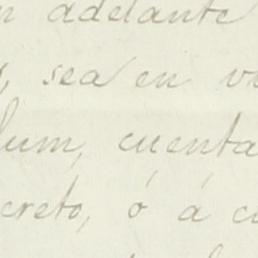 n adelante
, sea en v
lum, cuenta
creto, ó á c